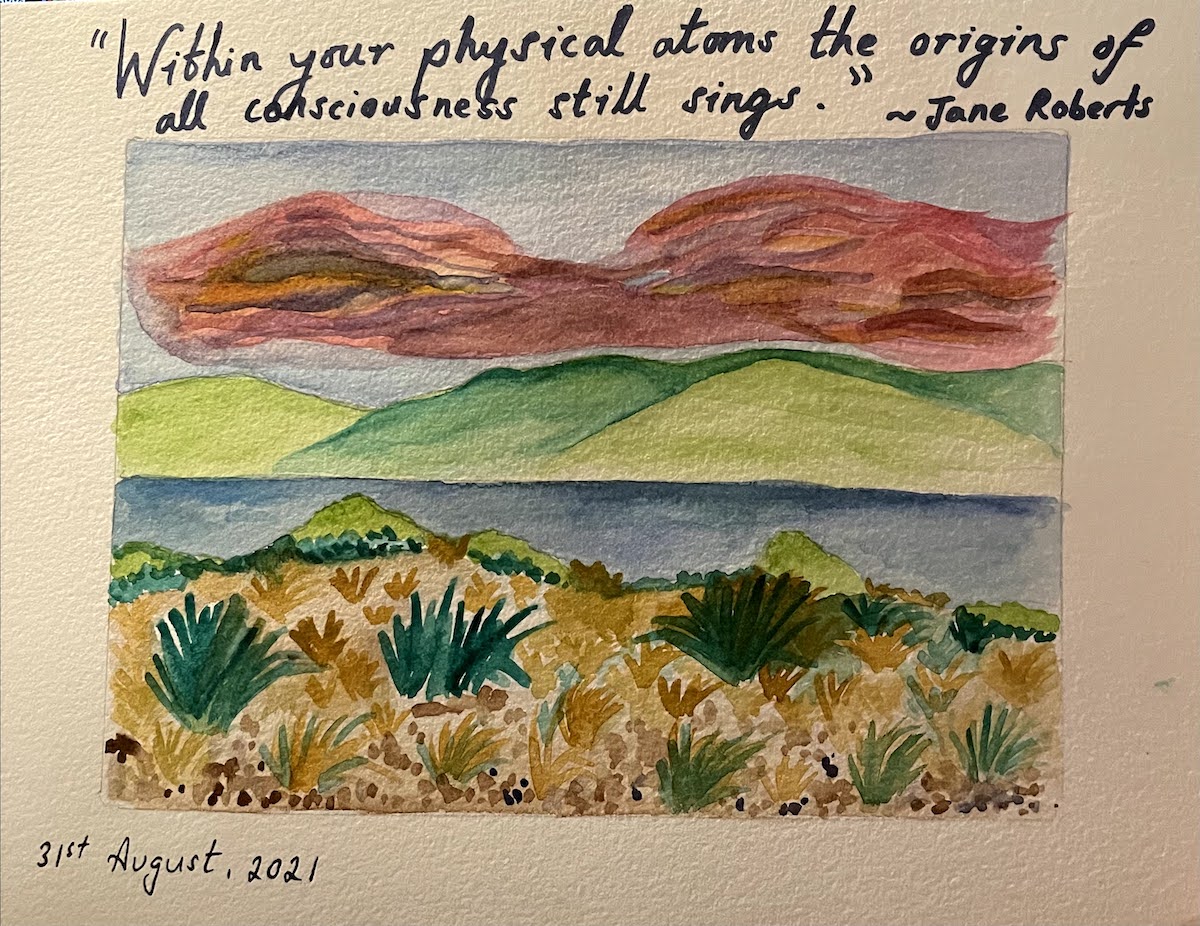 "Within your physical atoms the origins of
all consciousness still sings."
~Jane Roberts
31st August, 2021